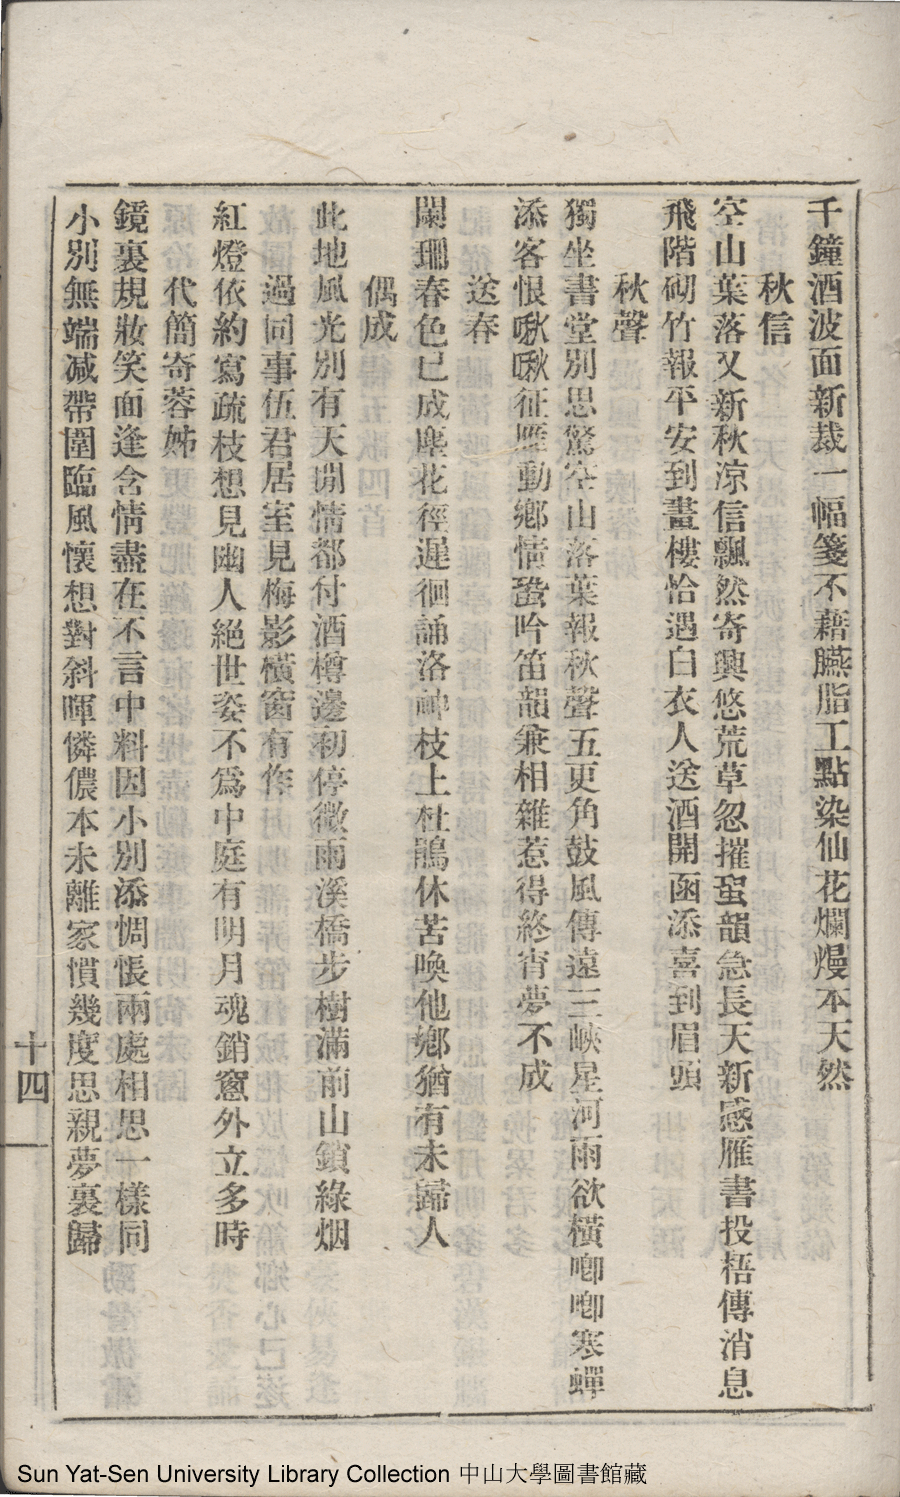 千鐘酒波面新裁一幅箋不藉臙脂工點染仙花爛熳本天然
秋信
空山葉落又新秋涼信飄然寄興悠荒草忽摧蛩韻急長天新感雁書投梧傳消息
飛階砌竹報平安到畫樓恰遇白衣人送酒開函添喜到眉頭
秋聲
獨坐書堂別思驚空山落葉報秋聲五更角鼓風傳遠三峽星河雨欲橫唧唧寒蟬
添客恨啾啾征雁動鄉情蛩吟笛韻兼相雜惹得終宵夢不成
送春
闌珊春色已成塵花徑遲徊誦洛神枝上杜鵑休苦喚他鄉猶有未歸人
偶成
此地風光別有天閒情都付酒樽邊初停微雨溪橋步樹滿前山鎖綠烟
過同事伍君居室見梅影橫窗有作
紅燈依約寫疏枝想見幽人絕世姿不爲中庭有明月魂銷窻外立多時
代簡寄蓉姊
鏡裏規妝笑面逢含情盡在不言中料因小別添惆悵兩處相思一樣同
小別無端減帶圍臨風懷想對斜暉憐儂本未離家慣幾度思親夢裏歸
十四
Sun Yat-Sen University Library Collection 中山大學圖書館藏